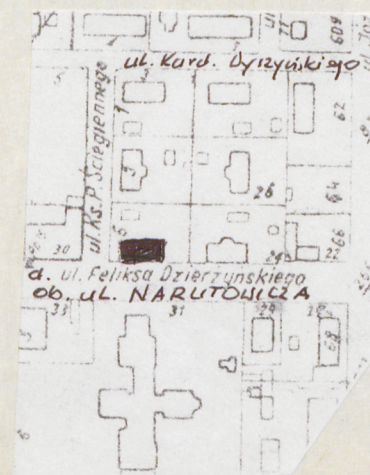 ul.
77
609
ul. Kard. Wyszyńskiego
3
ul. Ks. P. Ściegiennego
1
62
3
26
64
5
30
24
22
66
d. ul. Feliksa Dzierżyńskiego
ob. ul. NARUTOWICZA
33
31
29
68